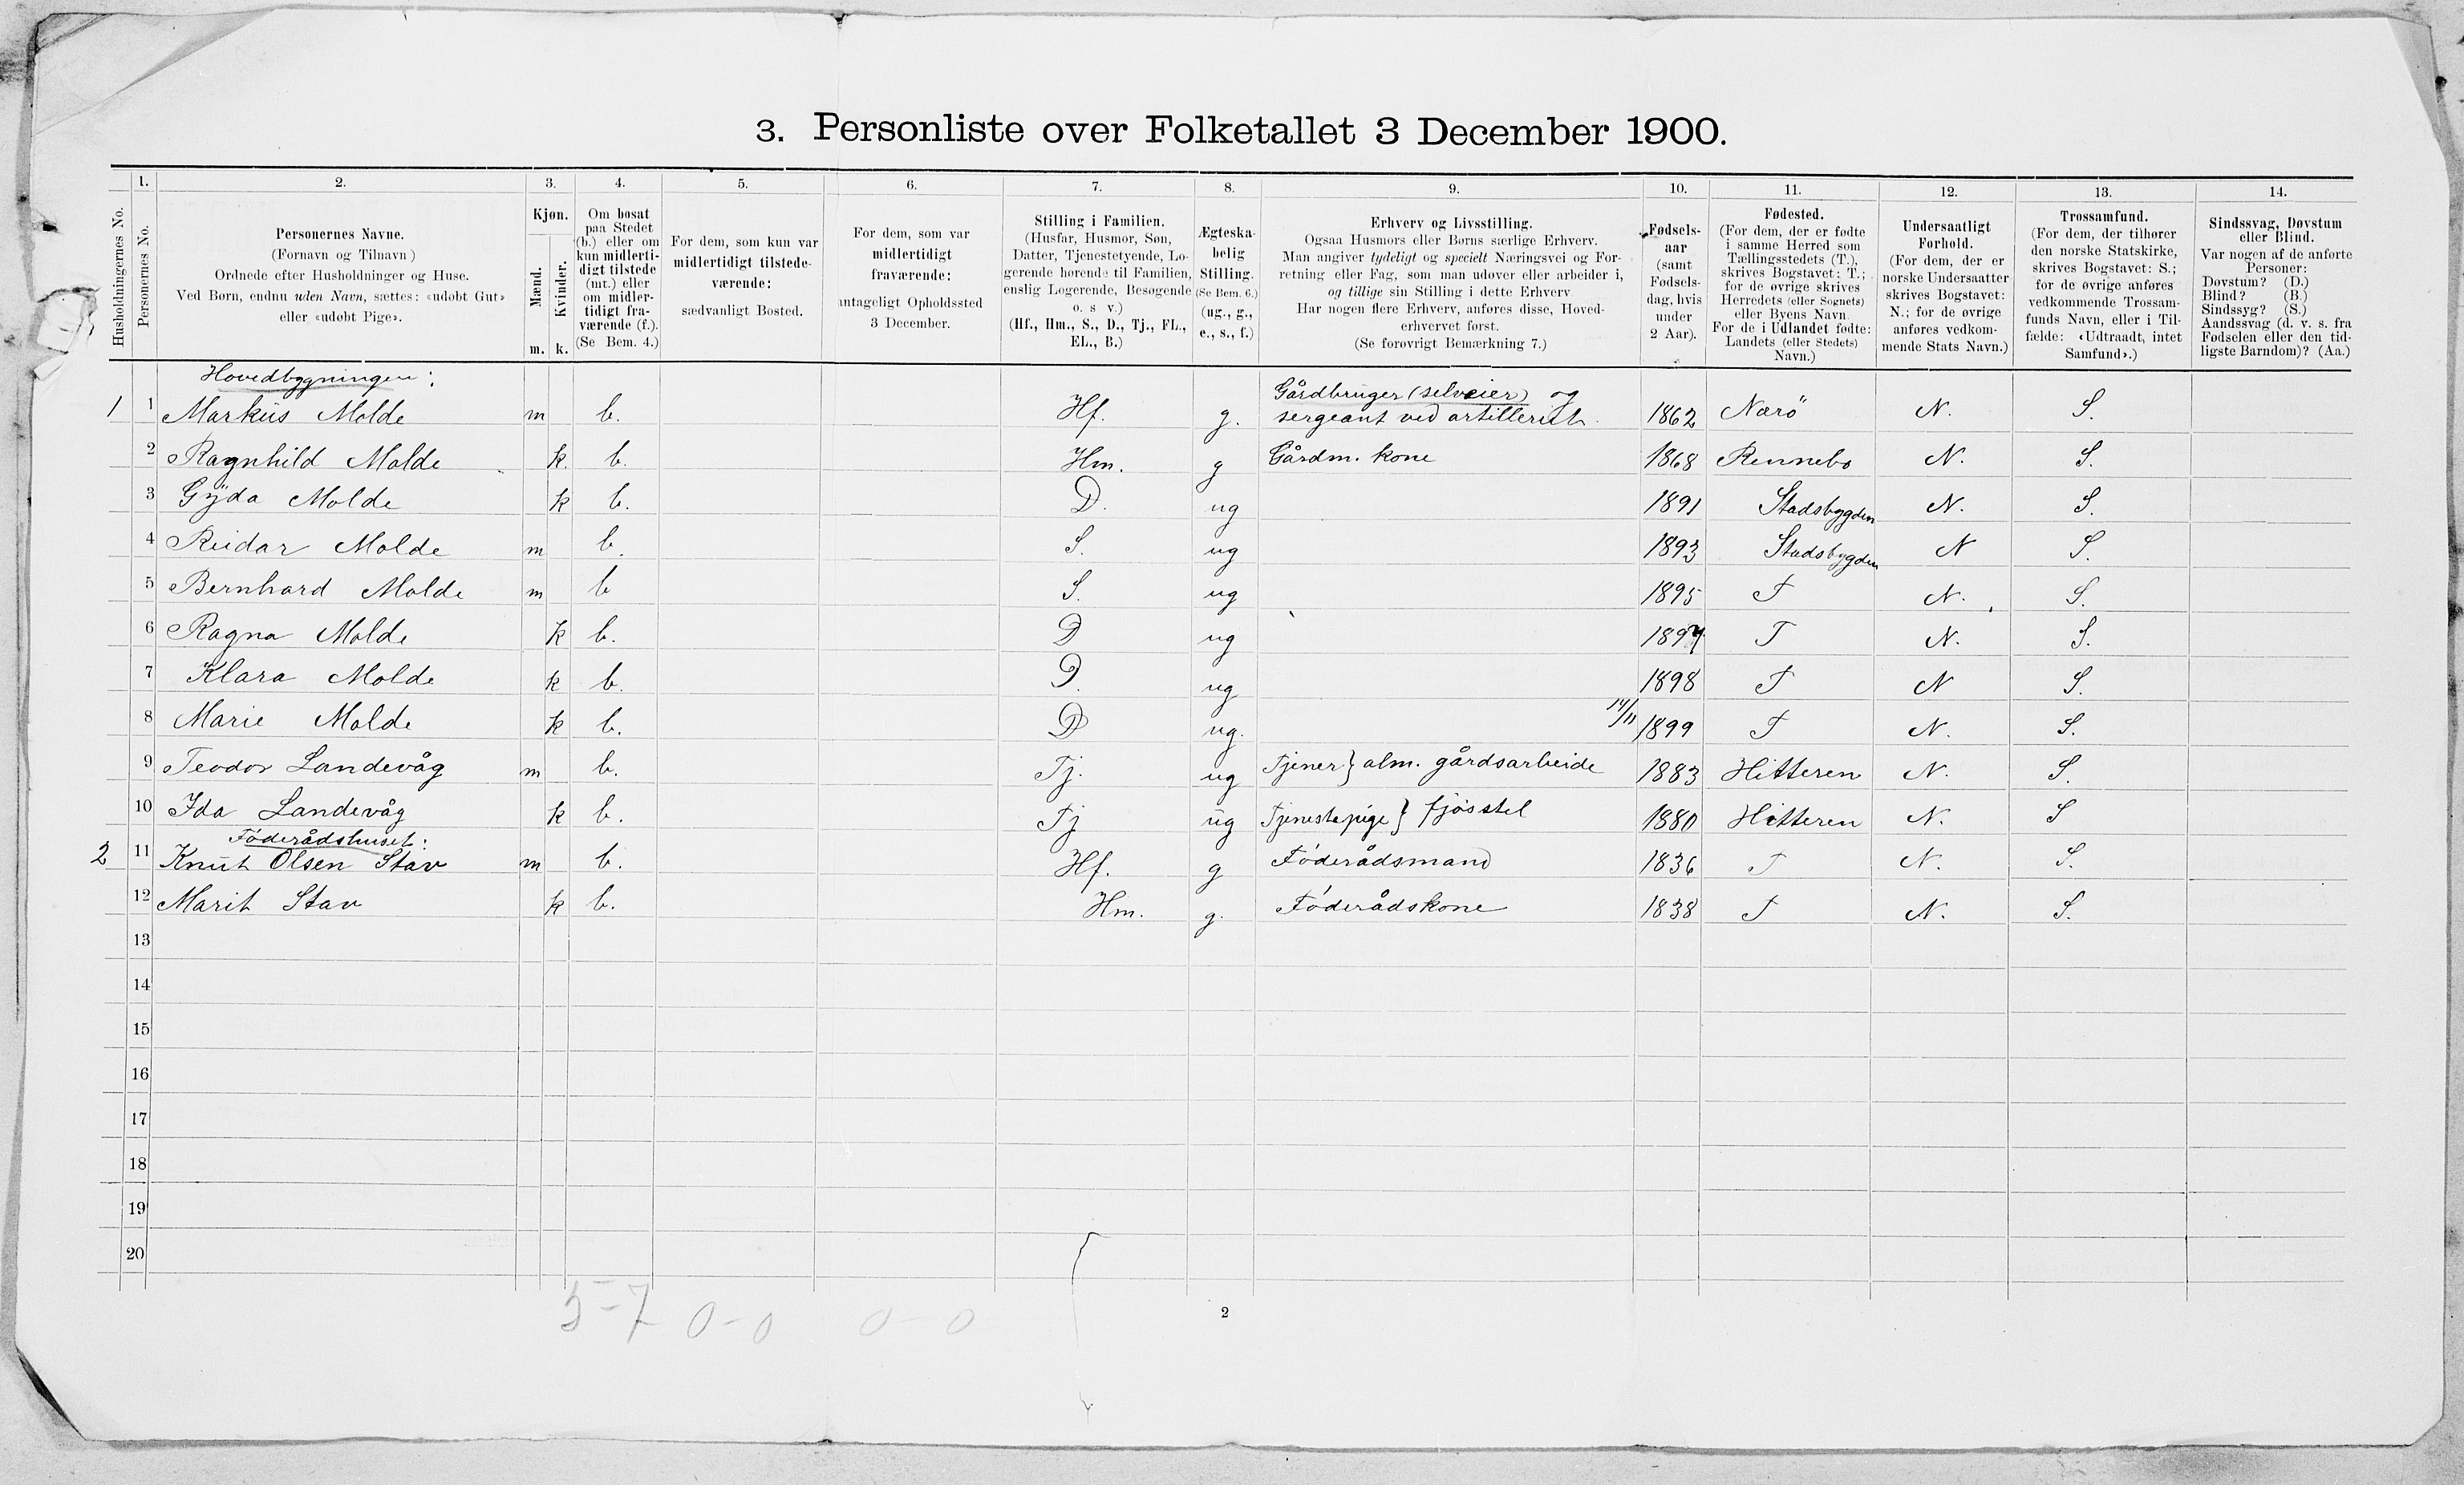 3. Personliste over Folketallet 3 December 1900.
1. 2. 3. 4. 5. 6. 7. 8. 9. 10. 11. 12. 13. 14.
Husholdningernes No.
Personernes No.
Personernes Navne.
(Fornavn og Tilnavn)
Ordnede efter Husholdninger og Huse.
Ved Børn, endnu uden Navn, sættes: «udøbt Gut»
eller «udøbt Pige».
Kjøn.
Mænd.
Kvinder.
m. k.
Om bosat
paa Stedet
(b.) eller om
kun midlerti-
digt tilstede
(mt.) eller
om midler-
tidigt fra-
værende (f.).
(Se Bem. 4.)
For dem, som kun var
midlertidigt tilstede-
værende:
sædvanligt Bosted.
For dem, som var
midlertidigt
fraværende:
antageligt Opholdssted
3 December.
Stilling i Familien.
(Husfar, Husmor, Søn,
Datter, Tjenestetyende, Lo-
gerende hørende til Familien,
enslig Logerende, Besøgende
o. s v.)
(Hf., Hm., S., D., Tj., FL.,
EL., B.)
Ægteska-
belig
Stilling.
(Se Bem. 6.)
(ug., g.,
e., s., f.)
Erhverv og Livsstilling.
Ogsaa Husmors eller Børns særlige Erhverv.
Man angiver tydeligt og specielt Næringsvei og For-
retning eller Fag, som man udøver eller arbeider i,
og tillige sin Stilling i dette Erhverv.
Har nogen flere Erhverv, anføres disse, Hoved-
erhvervet først.
(Se forøvrigt Bemærkning 7.)
Fødsels-
aar
(samt
Fødsels-
dag, hvis
under
2 Aar).
Fødested.
(For dem, der er fødte
i samme Herred som
Tællingsstedets (T.),
skrives Bogstavet: T.;
for de øvrige skrives
Herredets (eller Sognets)
eller Byens Navn.
For de i Udlandet fødte:
Landets (eller Stedets)
Navn.)
Undersaatligt
Forhold.
(For dem, der er
norske Undersaatter
skrives Bogstavet:
N.; for de øvrige
anføres vedkom-
mende Stats Navn.)
Trossamfund.
(For dem, der tilhører
den norske Statskirke,
skrives Bogstavet: S.;
for de øvrige anføres
vedkommende Trossam-
funds Navn, eller i Til-
fælde: «Udtraadt, intet
Samfund».)
Sindssvag, Døvstum
eller Blind.
Var nogen af de anførte
Personer:
Døvstum? (D.)
Blind? (B.)
Sindssyg? (S.)
Aandssvag (d. v. s. fra
Fødselen eller den tid-
ligste Barndom)? (Aa.)
Hovedbygningen:
Gårdbruger (selveier) og
1 1 Markus Molde m b. Hf. g. sergeant ved artilleriet. 1862 Nærö N. S.
2 Ragnhild Molde k. b. Hm. g Gårdm. kone 1868 Rennebo N. S.
3 Gyda Molde k b. D. ug 1891 Stadsbygden N. S.
4 Reidar Molde m b. S. ug 1893 Stadsbygden N S.
5 Bernhard Molde m b S. ug 1895 T N. S.
6 Ragna Molde k b. D ug 1897 T N. S.
7 Klara Molde k b. D. ug 1898 T N S.
8 Marie Molde k b. D ug. 14/11 1899 T N. S.
9 Teodor Landevåg m b. Tj. ug Tjener} alm. gårdsarbeide 1883 Hitteren N. S.
10 Ida Landevåg k b. Tj ug Tjenestepige} fjösstel 1880 Hitteren N. S
Föderådshuset:
2 11 Knut Olsen Stav m b. Hf. g Föderådsmand 1836 T N. S.
12 Marit Stav k b. Hm. g. Föderådskone 1838 T N. S.
13
14
15
16
17
18
19
20
5-7 0-0 0-0
2